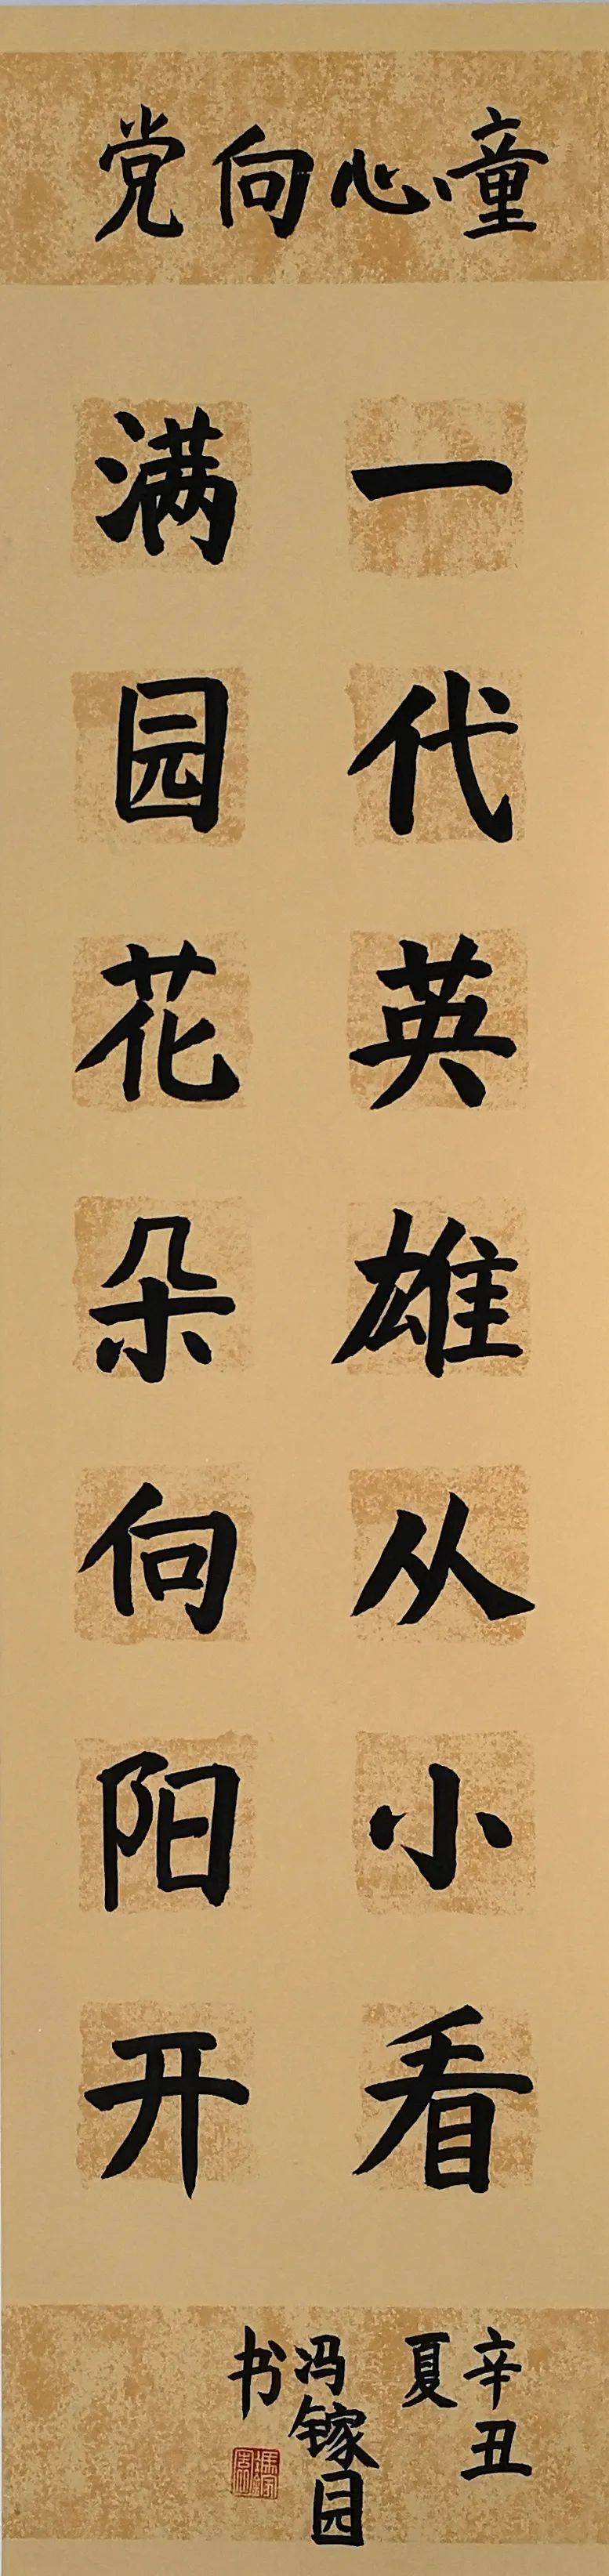 童心向党
一代英雄从小看
满园花朵向阳开
辛丑
夏
冯镓园
书